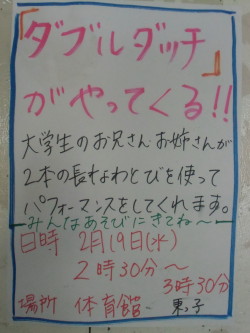 「ダブルダッチ」
がやってくる!!
大学生のお兄さんお姉さんが
2本の長なわとびを使って
パフォーマンスをしてくれます。
～みんなあそびにきてね～
日時 2月19日(水)
2時30分～
3時30分
場所 体育館 東っ子